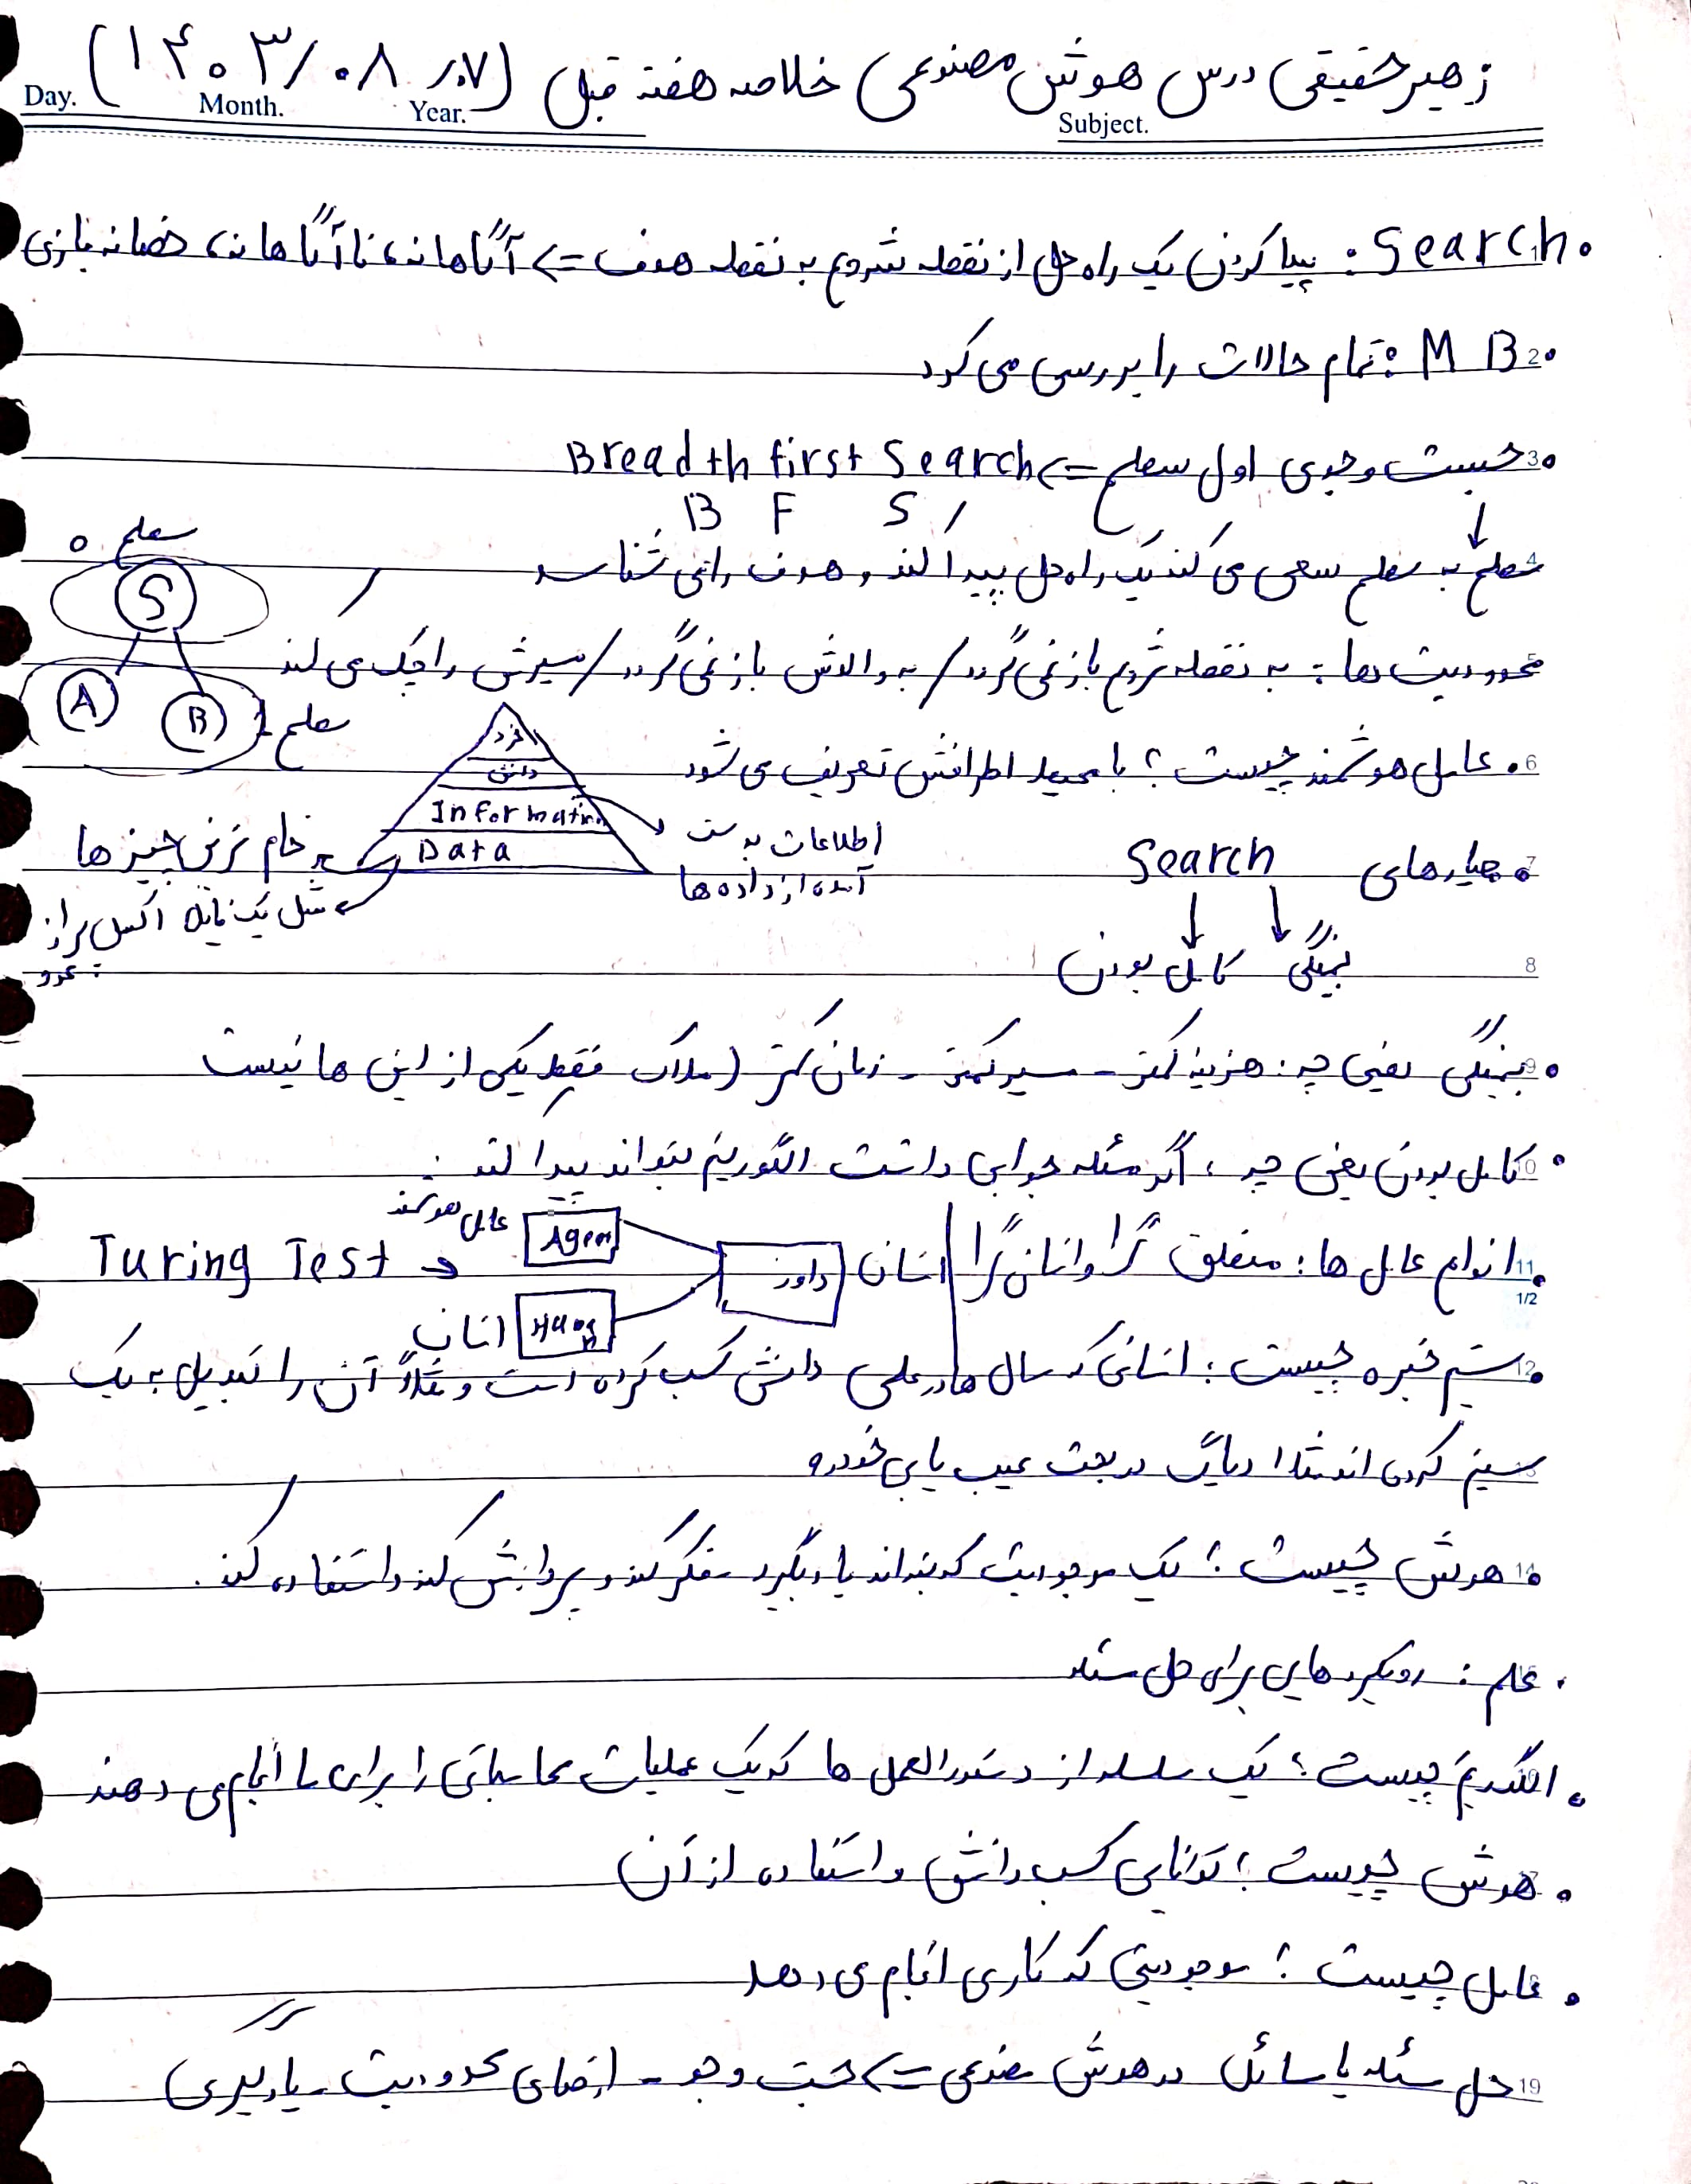 زهیر حقیقی درس هوش مصنوعی خلاصه هفته قبل (۱۴۰۳/۰۸/۰۷)
Day. Month. Year. Subject.
• Search : پیدا کردن یک راه حل از نقطه شروع به نقطه هدف => آگاهانه، نا آگاهانه، خصمانه بازی
2 • M B : تمام حالات را بررسی می کند
3 • جست و جوی اول سطح => Breadth first Search
B F S
↓
4 سطح به سطح سعی می کند یک راه حل پیدا کند و هدف را نمی شناسد
سطح 0
S
A B
سطح 1
محدودیت ها : به نقطه شروع باز نمی گردد / به والدش باز نمی گردد / مسیرش را چک می کند
6 • عامل هوشمند چیست ؟ با محیط اطرافش تعریف می شود
خرد
دانش
Information
Data
اطلاعات بدست
آمده از داده ها
خام ترین چیزها
مثل یک فایل اکسل پر از
عدد
7 • معیارهای Search
↓ ↓
8 بهینگی کامل بودن
• بهینگی یعنی چه : هزینه کمتر - مسیر کمتر - زمان کمتر (ملاک فقط یکی از این ها نیست
• کامل بودن یعنی چه ، اگر مسئله جوابی داشت الگوریتم بتواند پیدا کند .
11 • انواع عامل ها : منطق گرا و انسان گرا
1/2
انسان داور
Agent عامل هوشمند
Human انسان
Turing Test
12 • سیستم خبره چیست : انسانی که سال ها در علمی دانش کسب کرده است و مثلاً آن را تبدیل به یک
سیستم کردن اند مثلا دیاگ در بحث عیب یابی خودرو
14 • هوش چیست ؟ یک موجودیت که بتواند یاد بگیرد تفکر کند و پردازش کند و استفاده کند .
• علم : رویکردهایی برای حل مسئله
• الگوریتم چیست ؟ یک سلسله از دستورالعمل ها که یک عملیات محاسباتی را برای ما انجام می دهند
• هوش چیست ؟ توانایی کسب دانش و استفاده از آن
• عامل چیست ؟ موجودیتی که کاری انجام می دهد
19 حل مسئله یا مسائل در هوش مصنوعی => جست و جو - ارضای محدودیت - یادگیری